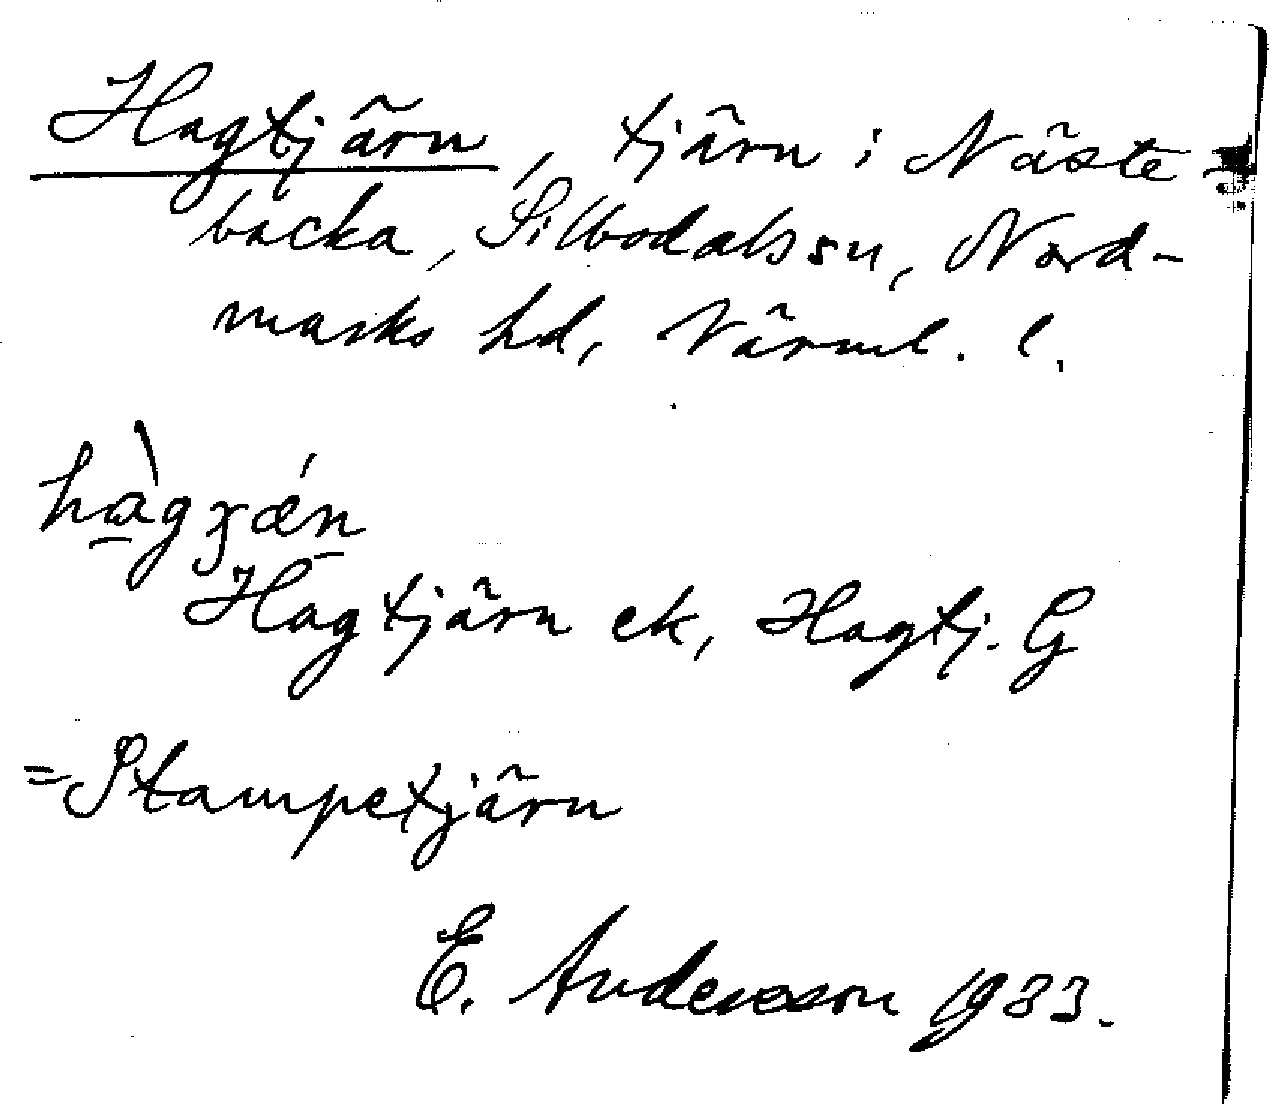 Hagtjärn, tjärn i Näste-
backa, Silbodals sn, Nord-
marks hd, Värml. l.
hàgʒǽn
Hagtjärn ek, Hagtj. G
=Stampetjärn
E. Andersson 1933.